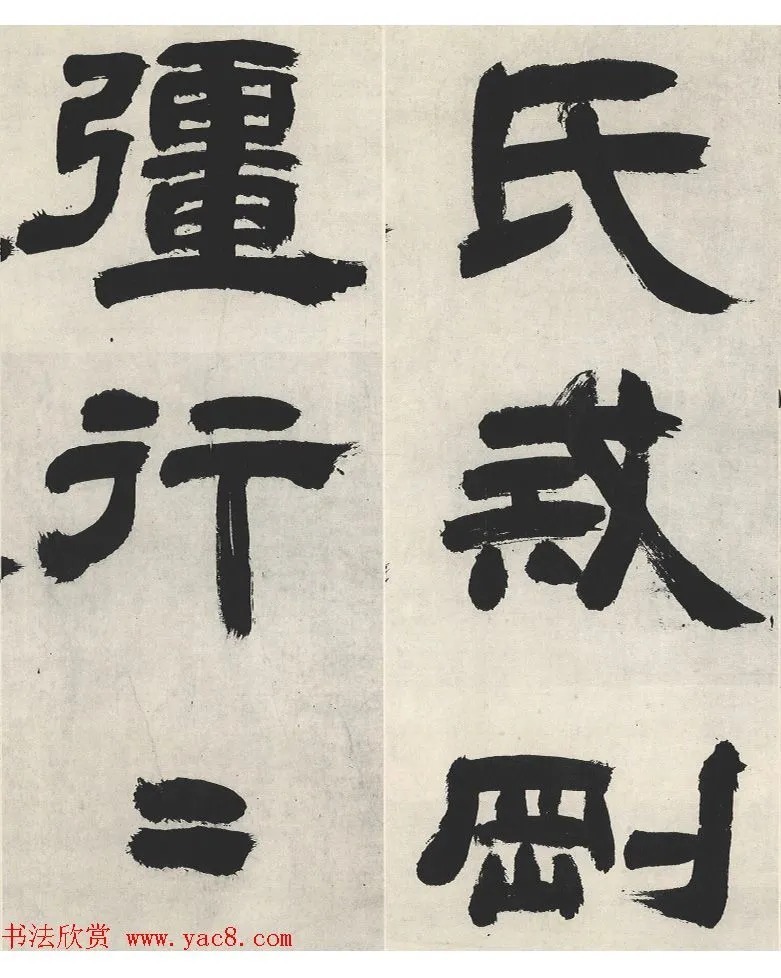 氏戒剛
彊行〻
书法欣赏 www.yac8.com